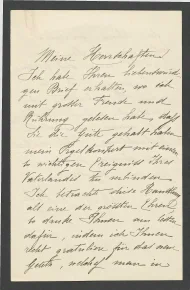 Meine Herrschaften!
Ich habe Ihren liebenswürdi-
gen Brief erhalten, wo ich
mit großer Freude und
Rührung gelesen habe, daß
Sie die Güte gehabt haben
mein
so wichtigen Ereigniß Ihres
Vaterlandes zu verbinden
Ich betrachte diese Handlung
als eine der größten Ehren,
u danke Ihnen
dafür, indem ich Ihnen
recht gratulire für das
man in